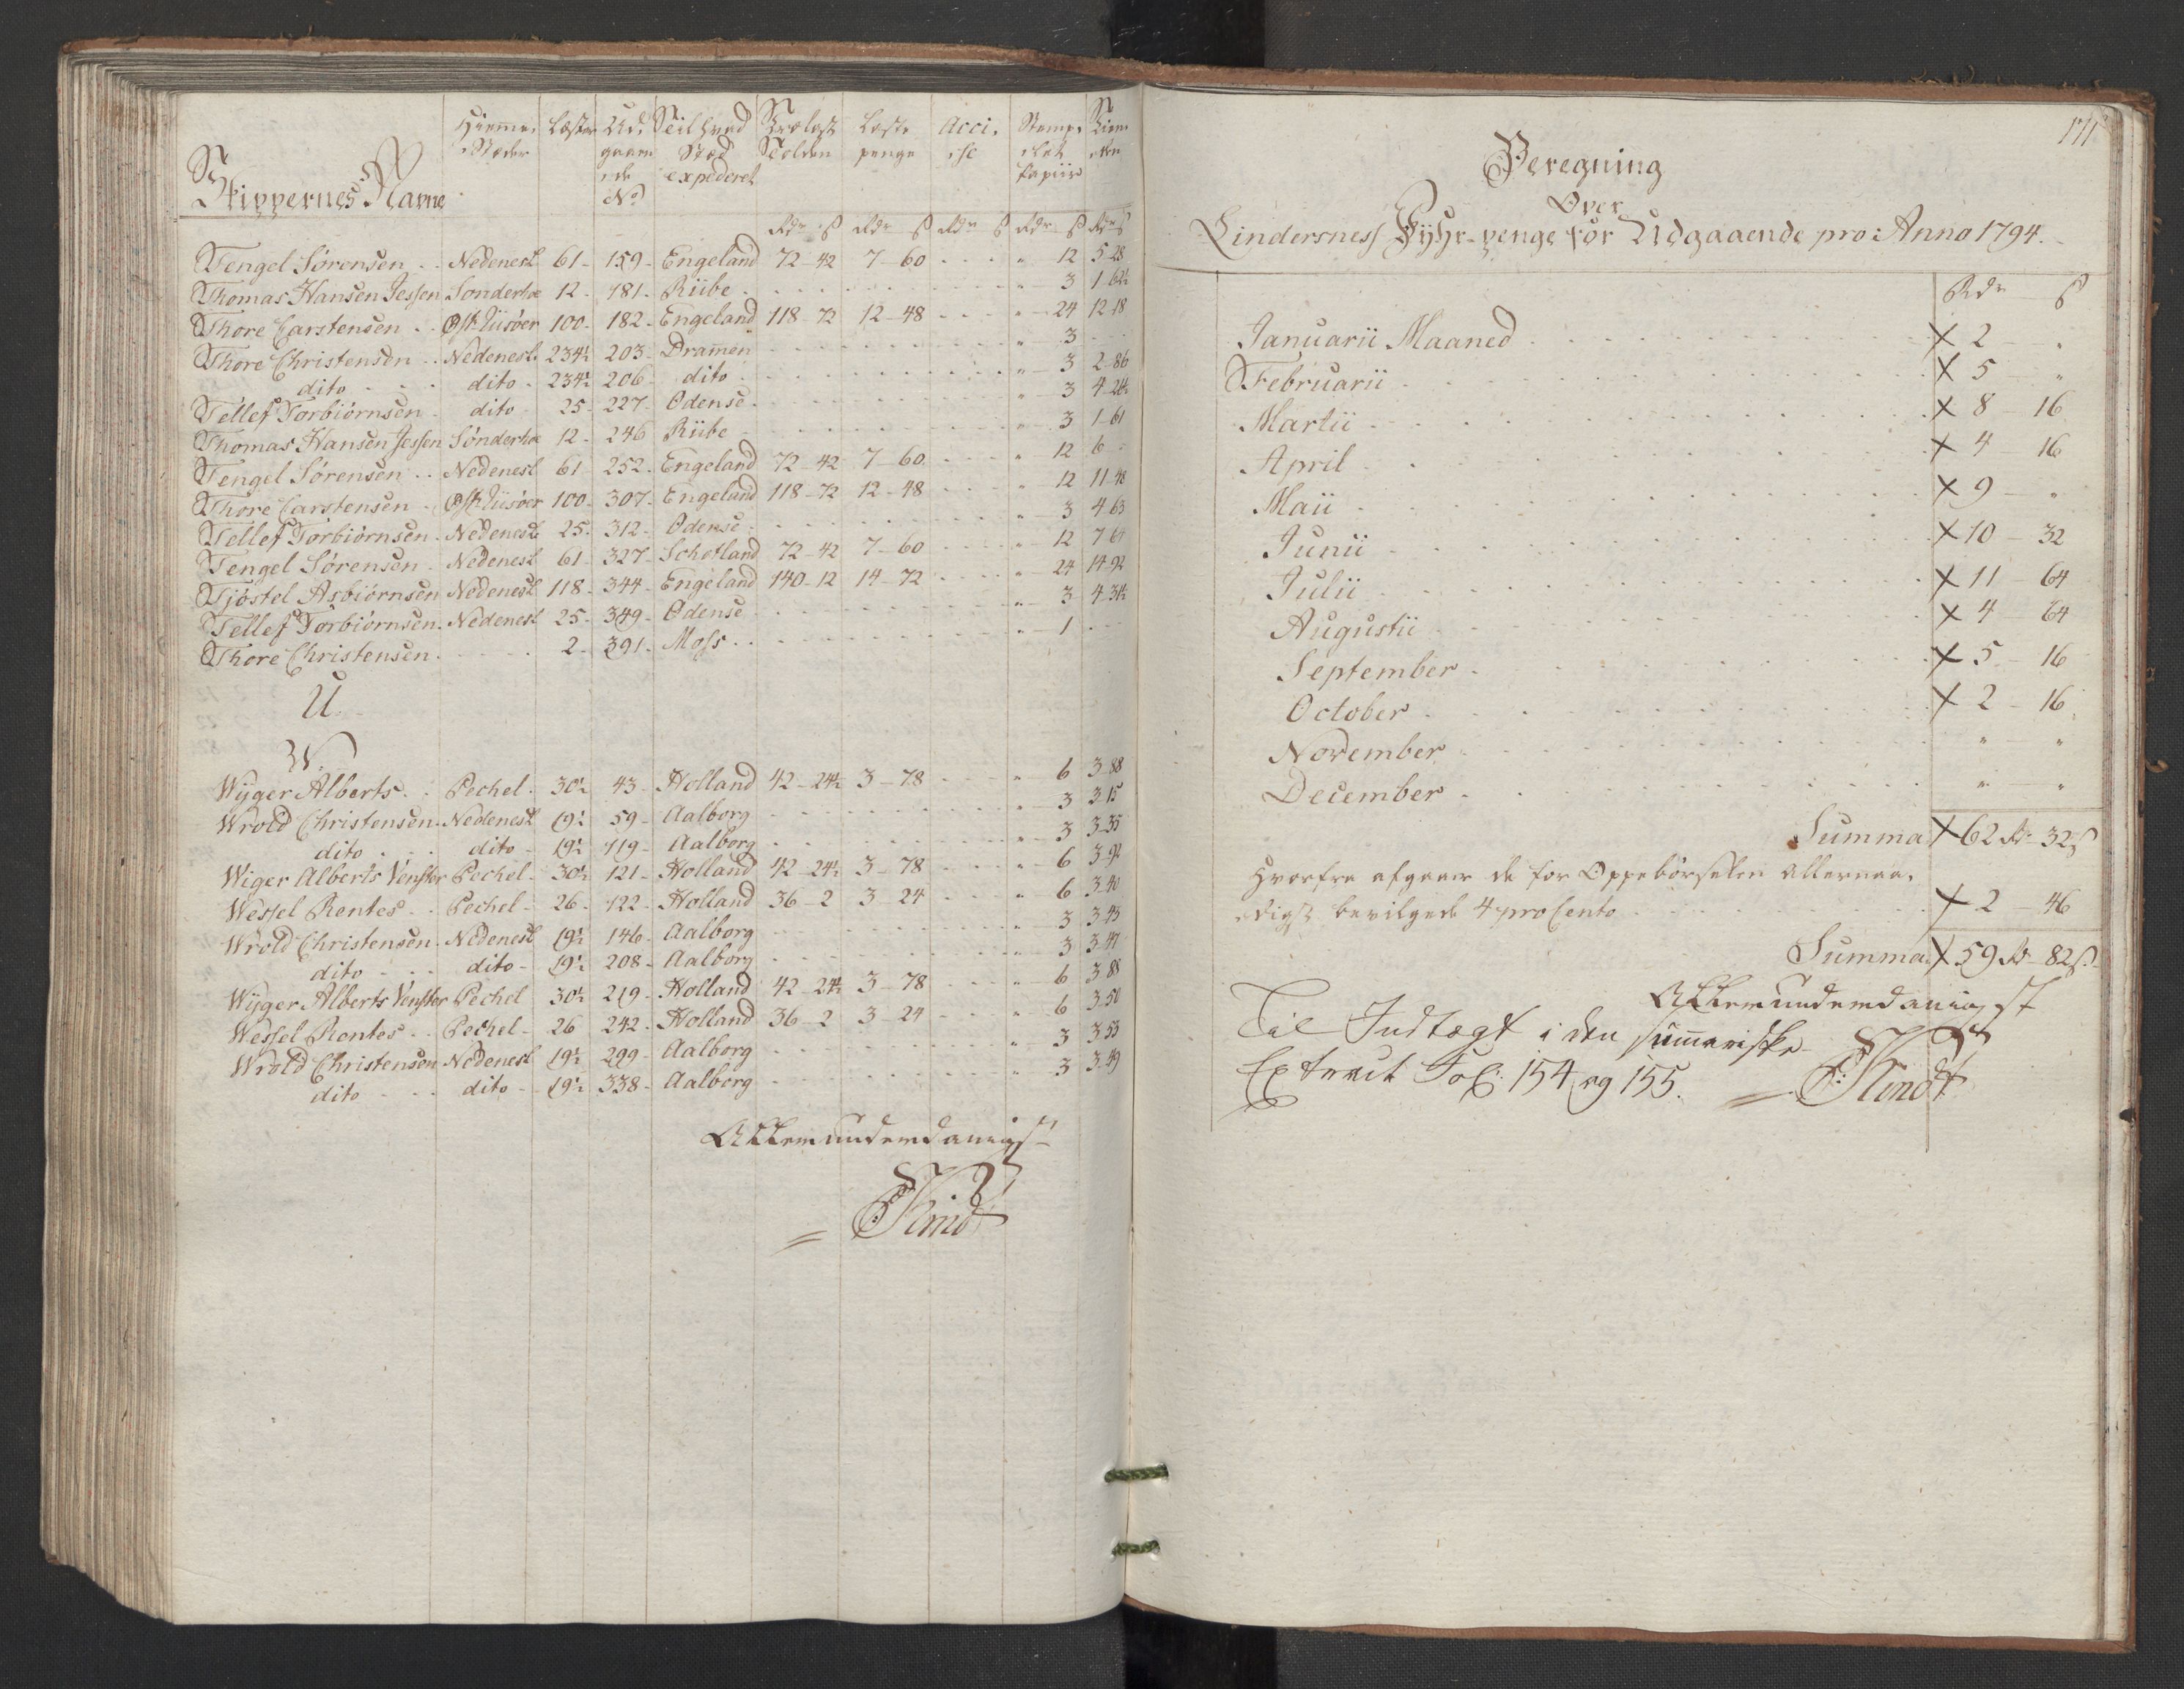 Skippernes Navne | Hiemme Stæder | Læster | Udgaaende No | Til hvad Stæd expederet | Trælast Tolden | Læste penge | Acci se | Stemplet Papiir
Rdr ß Rdr ß Rdr ß Rdr ß Rdr ß
Tengel Sørensen . . Nedenest 61 - 159 - Engeland 72 - 42 7 - 60 . . . " 12 5 28
Thomas Hansen Jessen Sonderhoe 12 - 181 - Riibe . . . " 3 1 62½
Thore Carstensen . . Østriisøer 100 - 182 - Engeland 118 - 72 12 - 48 . . . " 24 12 18
Thore Christensen . . Nedenest 234½ 203 - Dramen . . . " 3 . .
dito . . . dito - 234½ 206 - dito . . . " 3 2 86
Tellef Torbiørnsen . dito - 25 - 227 - Odense . . . " 3 4 24½
Thomas Hansen Jessen Sønderhoe 12 - 246 Riibe . . . " 3 1 61
Tengel Sørensen . . Nedenest 61 - 252 - Engeland 72 - 42 7 - 60 . . . " 12 6 -
Thore Carstensen . Østriisøer 100 - 307 - Engeland 118 - 72 12 - 48 . . . " 12 11 48
Tellef Torbiørnsen . Nedenest 25 - 312 - Odense . . . " 3 4 63
Tengel Sørensen . Nedenest 61 - 327 - Schotland 72 - 42 7 - 60 . . . " 12 7 61
Tjøstel Asbiørnsen Nedenest 118 - 344 - Engeland 140 - 12 14 - 72 . . . " 24 14 92
Tellef Torbiørnsen . Nedenest 25 - 349 - Odense . . . " 3 4 31½
Thore Christensen . . . 2 - 391 - Moss . . . " 1 . .
U.
W.
Wiiger Alberts . . Pechel . 30½ 43 - Holland 42 - 24½ 3 - 78 . . . " 6 3 88
Wrold Christensen . Nedenest 19½ 59 - Aalborg . . . " 3 3 15
dito . . . dito - 19½ 119 - Aalborg . . . " 3 3 35
Wiger Alberts Venster Pechel - 30½ 121 - Holland 42 - 24½ 3 - 78 . . . " 6 3 92
Wessel Rentes . . Pechel - 26 - 122 - Holland 36 - 2 3 - 24 . . . " 6 3 40
Wrold Christensen . Nedenest 19½ 146 - Aalborg . . . " 3 3 45
dito . . . dito - 19½ 208 - Aalborg . . . " 3 3 47
Wiiger Alberts Venster Pechel 30½ 219 - Holland 42 - 24½ 3 - 78 . . . " 6 3 88
Wessel Rentes . . Pechel - 26 242 - Holland 36 - 2 3 - 24 . . . " 6 3 50
Wrold Christensen Nedenest 19½ 299 - Aalborg . . . " 3 3 53
dito . . . dito - 19½ 338 - Aalborg . . . " 3 3 49
Allerunderdanigst
Kindt
171
Beregning
Over
Lindersness Fyhr-penge for Udgaaende pro: Anno 1794.
Rdr ß
Januarii Maaned . . . 2 - "
Februarii . . . 5 - "
Martii . . . 8 - 16
April . . . 4 - 16
Maii . . . 9 - "
Junii . . . 10 - 32
Julii . . . 11 - 64
Augustii . . . 4 - 64
September . . . 5 - 16
October . . . 2 - 16
November . . . " - "
December . . . " - "
Summa 62 Rdr 32 ß
Hvorfra afgaaer de for Oppebørselen allernaa-
digst bevilgede 4 pro Cento . . . 2 - 46
Summa 59 Rdr 82 ß
Allerunderdanigst
Til Indtægt i den summariske
Extract Fol: 154 og 155.
Kindt